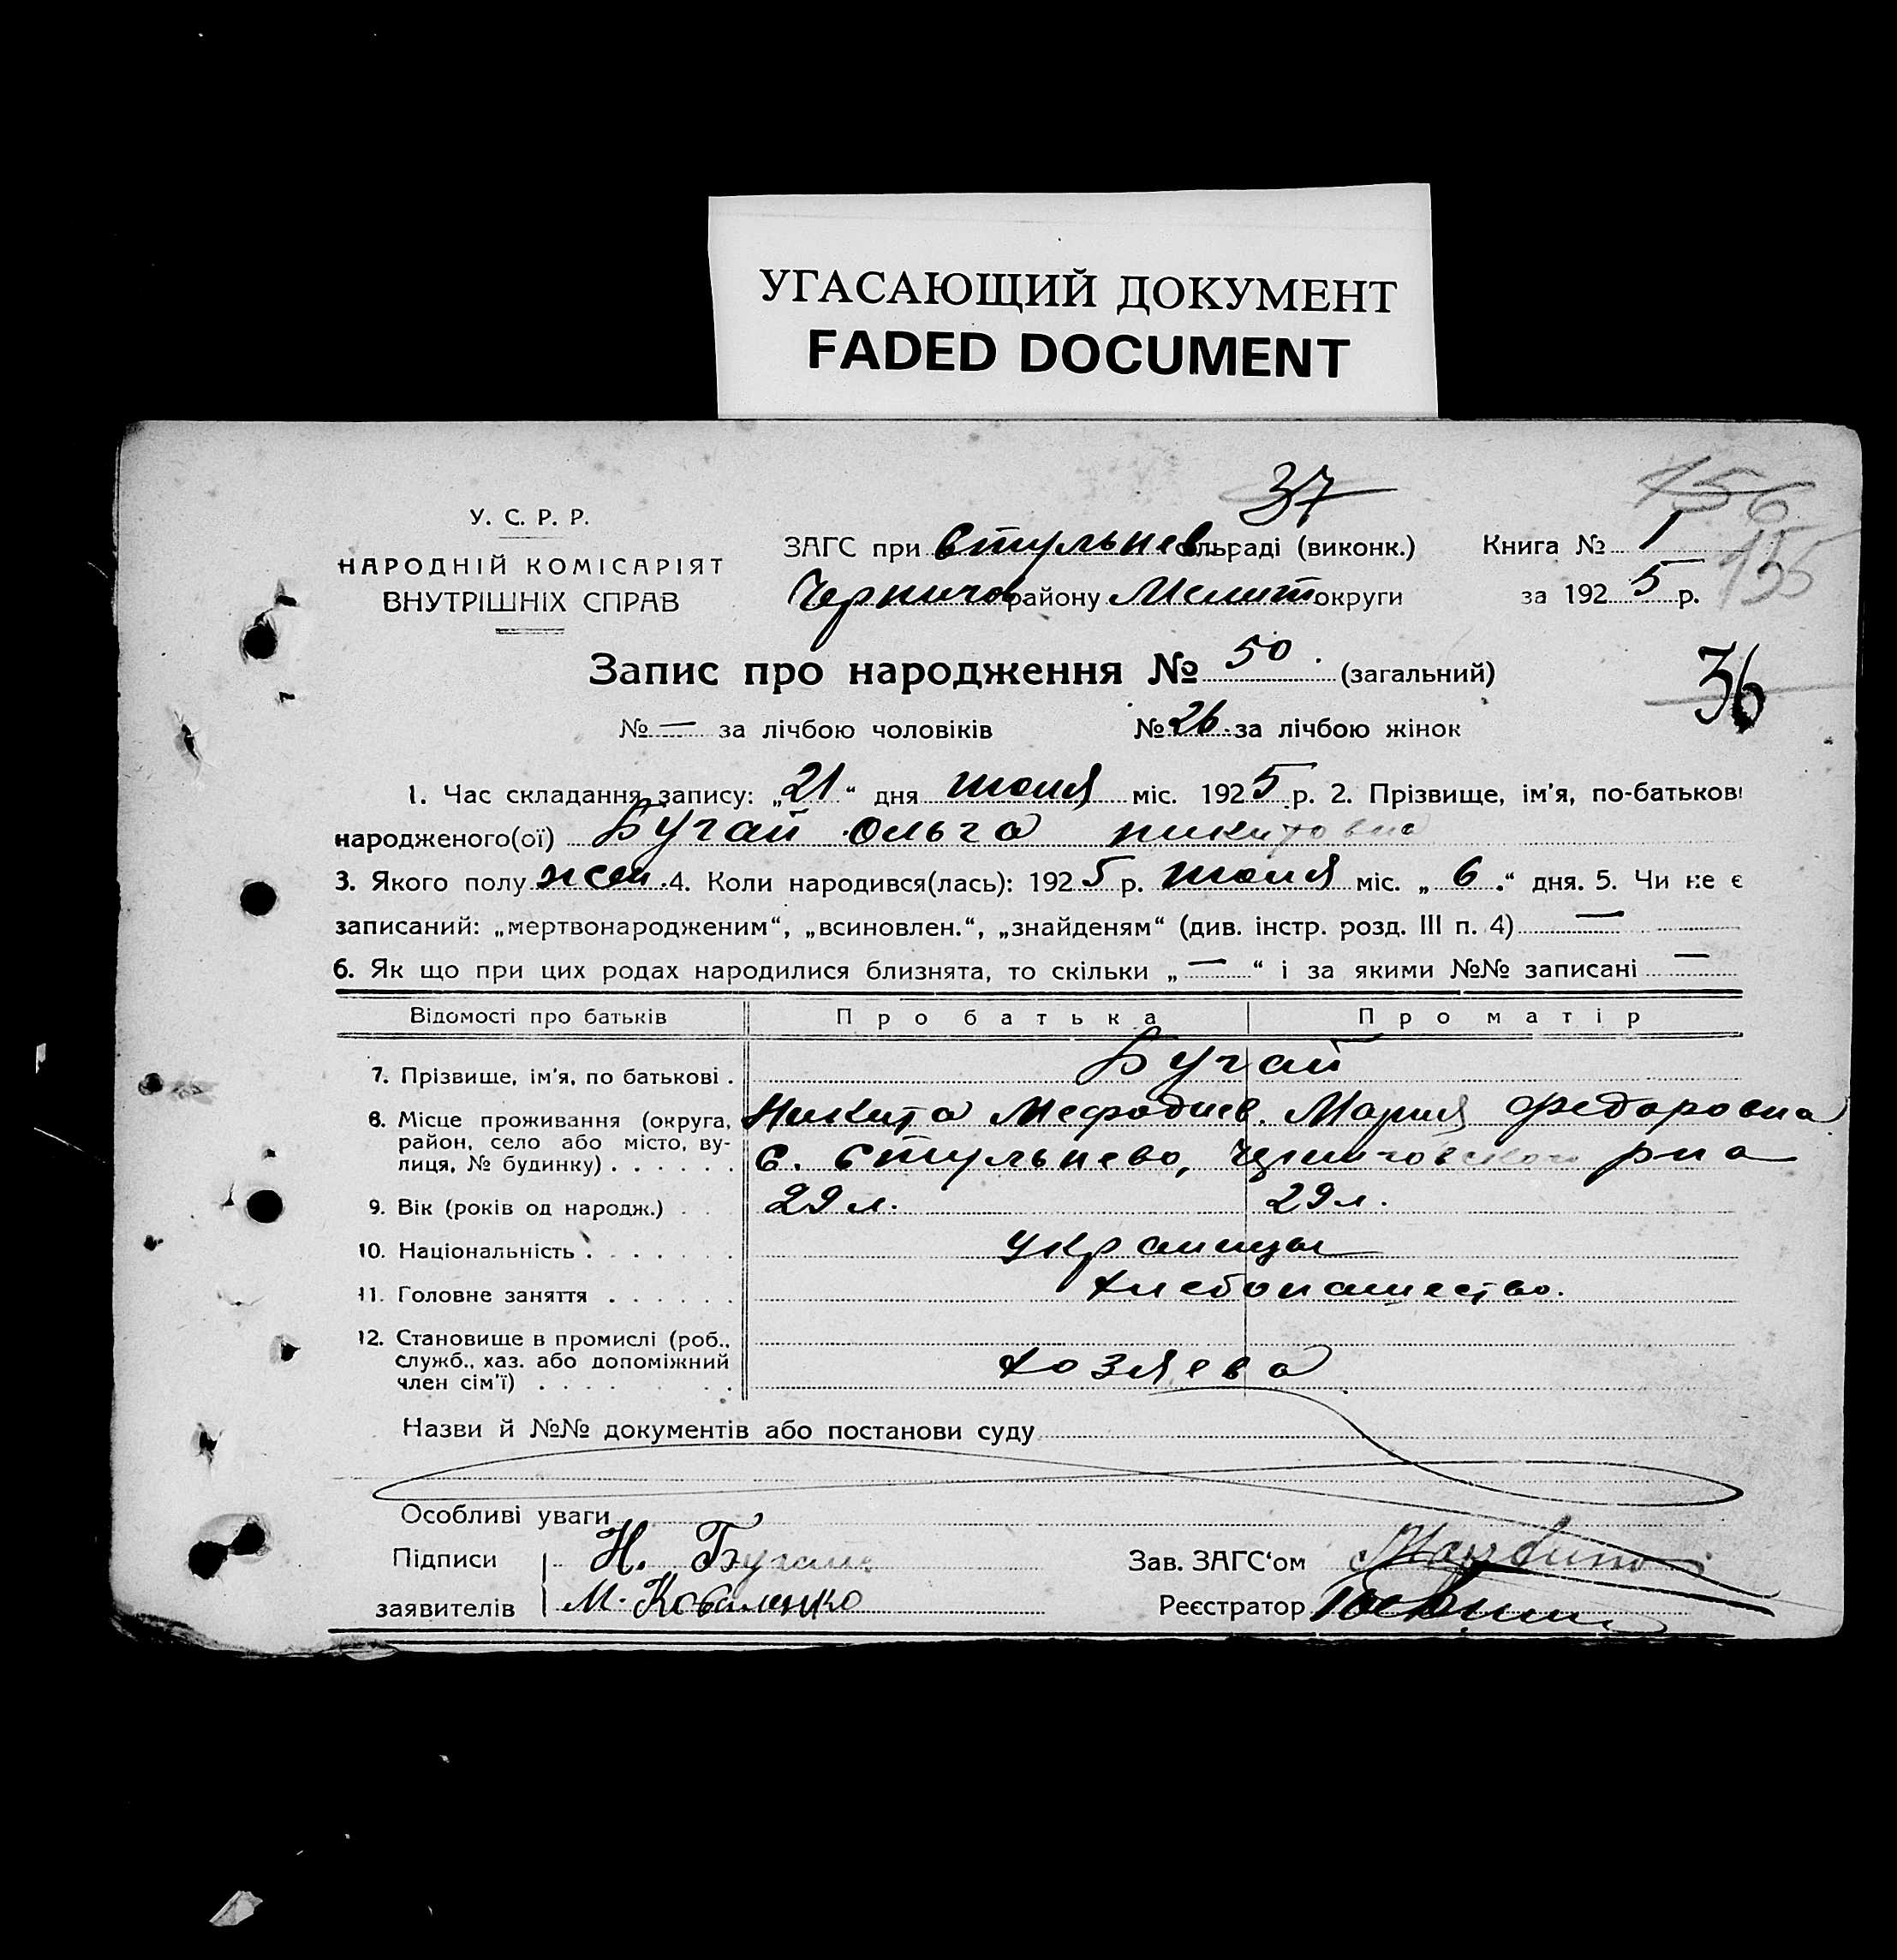 УГАСАЮЩИЙ ДОКУМЕНТ
FADED DOCUMENT
37
156
155
У. С. Р. Р.
НАРОДНІЙ КОМІСАРІЯТ
ВНУТРІШНІХ СПРАВ
ЗАГС при Стульнев сільраді (виконк.) Книга № 1
Чернигов району Мелит округи за 1925 р.
Запис про народження № 50. (загальний)
36
№ — за лічбою чоловіків № 26. за лічбою жінок
1. Час складання запису: „21“ дня июля міс. 1925 р. 2. Прізвище, ім'я, по-батькові
народженого(ої) Бугай Ольга Никитовна
3. Якого полу жен. 4. Коли народився(лась): 1925 р. июля міс. „6.“ дня. 5. Чи не є
записаний: „мертвонародженим“, „всиновлен.“, „знайденям“ (див. інстр. розд. III п. 4) —
6. Як що при цих родах народилися близнята, то скільки „—“ і за якими №№ записані —
Відомості про батьків Про батька Про матір
7. Прізвище, ім'я, по батькові . Бугай
8. Місце проживання (округа, Никита Мефодиев. Мария Федоровна
район, село або місто, ву-
лиця, № будинку) . . . . . . с. Стульнево, Черниговского рна
9. Вік (років од народж.) . . . 29 л. 29 л.
10. Національність . . . . . . . украинцы
11. Головне заняття . . . . . . хлебопашество.
12. Становище в промислі (роб.,
служб., хаз. або допоміжний
член сім'ї) . . . . . . . . хозяева
Назви й №№ документів або постанови суду
Особливі уваги
Підписи Н. Бугай Зав. ЗАГС'ом
заявителів М. Коваленко Реєстратор